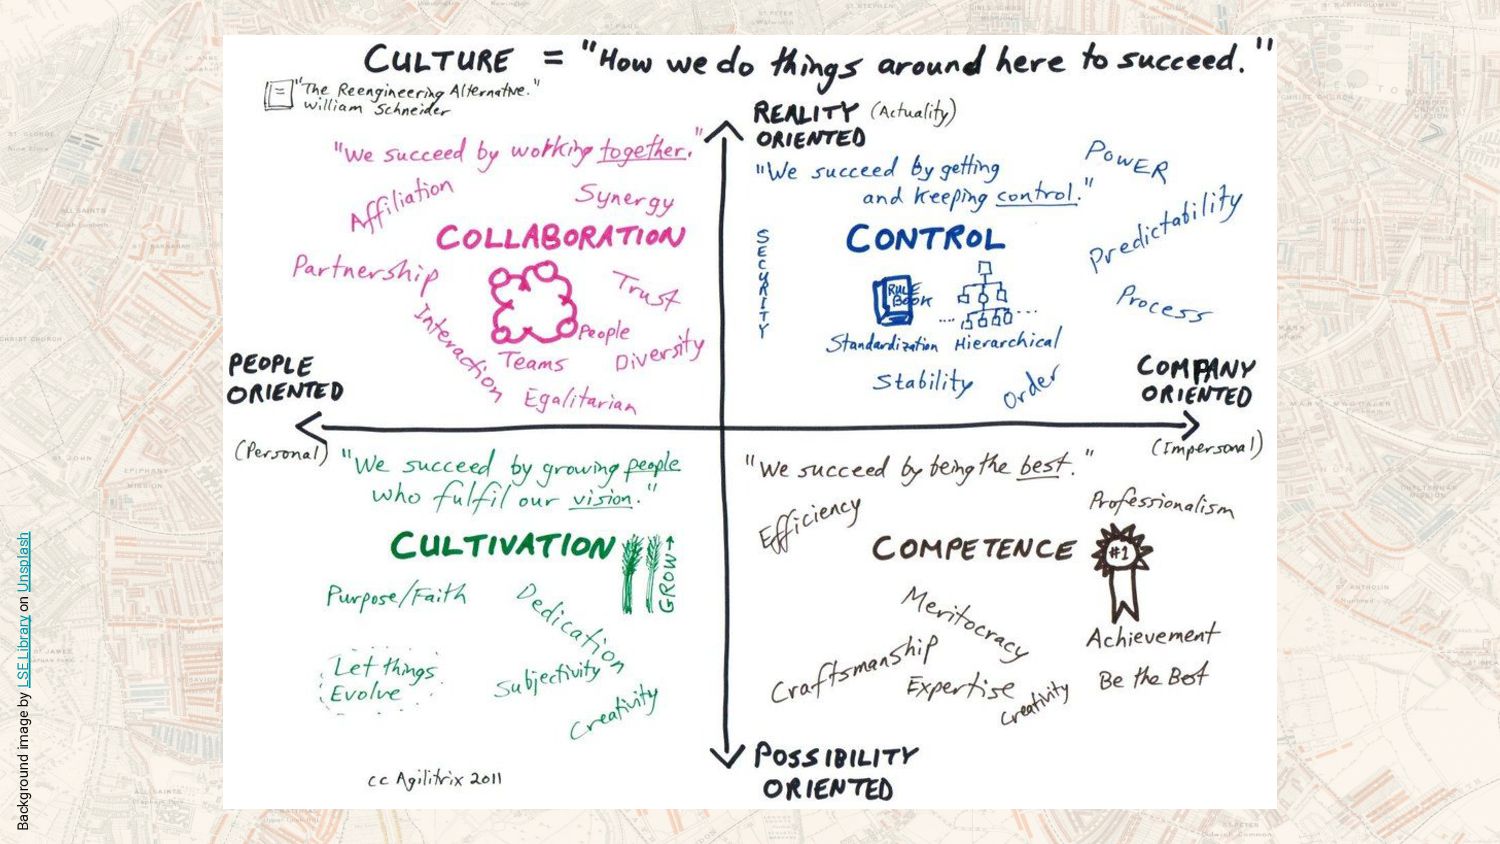 CULTURE = "How we do things around here to succeed."
"The Reengineering Alternative."
William Schneider
REALITY (Actuality)
ORIENTED
"We succeed by working together."
Affiliation
Synergy
COLLABORATION
Partnership
Trust
Interaction
People
Teams
Diversity
Egalitarian
"We succeed by getting
and keeping control."
POWER
Predictability
SECURITY
CONTROL
RULE
BOOK
Process
Standardization Hierarchical
Stability
Order
PEOPLE
ORIENTED
(Personal)
COMPANY
ORIENTED
(Impersonal)
"We succeed by growing people
who fulfil our vision."
CULTIVATION
GROW
Purpose/Faith
Dedication
Let things
Evolve
Subjectivity
Creativity
"We succeed by being the best."
Efficiency
Professionalism
COMPETENCE
#1
Meritocracy
Achievement
Craftsmanship
Expertise
Be the Best
Creativity
POSSIBILITY
ORIENTED
cc Agilitrix 2011
Background image by LSE Library on Unsplash